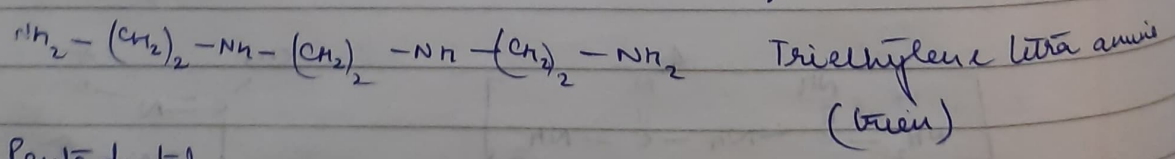 NH₂ – (CH₂)₂ – NH – (CH₂)₂ – NH – (CH₂)₂ – NH₂ Triethylene tetra amine
(trien)